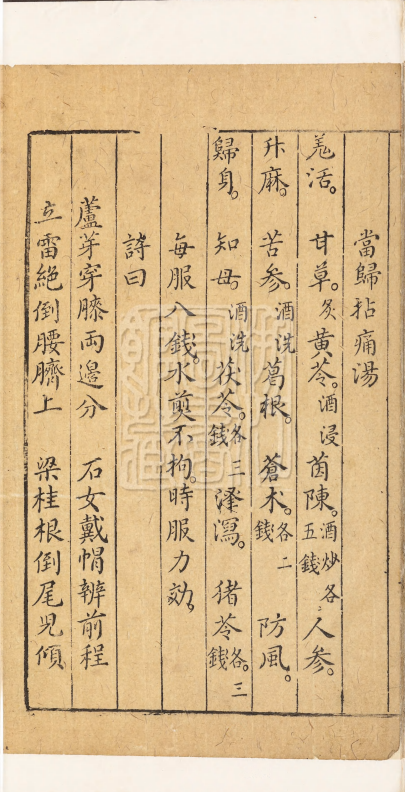 當歸拈痛湯
羗活。甘草。炙黄芩。酒浸茵陳。酒炒各五錢人参。
升麻。苦参。酒洗葛根。蒼术。各二錢防風。
歸身。知母。酒洗茯苓。各三錢澤瀉。猪苓各。三錢
每服八錢。水煎不拘。時服力効。
詩曰
蘆芽穿膝両邊分 石女戴帽辨前程
立雷絶倒腰臍上 梁桂根倒尾児傾